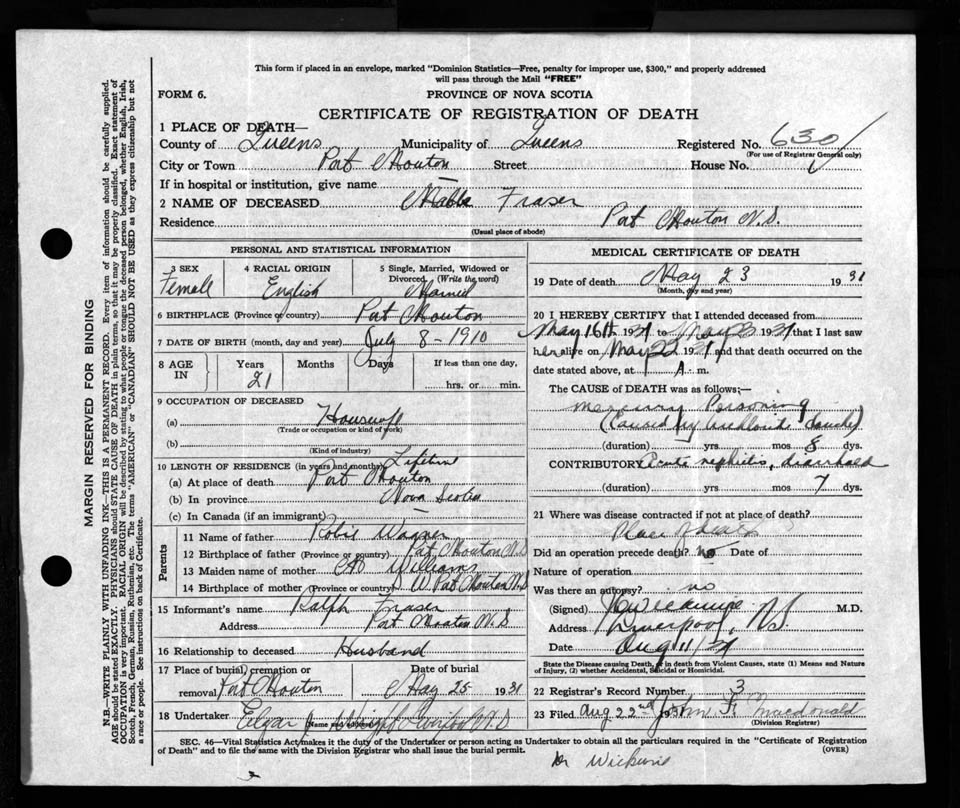 This form if placed in an envelope, marked "Dominion Statistics—Free, penalty for improper use, $300," and properly addressed
will pass through the Mail "FREE"
FORM 6. PROVINCE OF NOVA SCOTIA
CERTIFICATE OF REGISTRATION OF DEATH
1 PLACE OF DEATH—
County of Queens Municipality of Queens Registered No. 630
(For use of Registrar General only)
City or Town Port Mouton Street House No.
If in hospital or institution, give name —
2 NAME OF DECEASED Fraser
Residence Port Mouton N.S.
(Usual place of abode)
PERSONAL AND STATISTICAL INFORMATION
3 SEX Female
4 RACIAL ORIGIN English
5 Single, Married, Widowed or Divorced (Write the word) Married
6 BIRTHPLACE (Province or country) Port Mouton
7 DATE OF BIRTH (month, day and year) July 8 - 1910
8 AGE IN Years 21 Months Days If less than one day, hrs. or min.
9 OCCUPATION OF DECEASED
(a) Housewife
(Trade or occupation or kind of work)
(b)
(Kind of industry)
10 LENGTH OF RESIDENCE (in years and months) Lifetime
(a) At place of death Port Mouton
(b) In province Nova Scotia
(c) In Canada (if an immigrant) —
Parents
11 Name of father Robie Wagner
12 Birthplace of father (Province or country) Port Mouton N.S
13 Maiden name of mother Williams
14 Birthplace of mother (Province or country) W. Port Mouton N.S
15 Informant's name Ralph Fraser
Address Port Mouton N.S
16 Relationship to deceased Husband
17 Place of burial, cremation or removal Port Mouton Date of burial May 25 1931
18 Undertaker Edgar N.S
(Name and address)
MEDICAL CERTIFICATE OF DEATH
19 Date of death May 23 1931
(Month, day and year)
20 I HEREBY CERTIFY that I attended deceased from
May 16th 1931 to May 23 1931 that I last saw
her alive on May 22 1931 and that death occurred on
date stated above, at 1 A. m.
The CAUSE OF DEATH was as follows;
mercury Poisoning
(Caused by douche)
(duration) yrs mos 8 dys.
CONTRIBUTORY Acute nephritis, diarrhoea
(duration) yrs. mos 7 dys.
21 Where was disease contracted if not at place of death?
Place of death
Did an operation precede death? no Date of
Nature of operation
Was there an autopsy? no
(Signed) M.D.
Address Liverpool, N.S.
Date Aug 11/31
State the Disease causing Death, or in death from Violent Causes, state (1) Means and Nature
of Injury, (2) whether Accidental, Suicidal or Homicidal.
22 Registrar's Record Number 3
23 Filed Aug 22nd 1931 John F Macdonald
(Division Registrar)
SEC. 46—Vital Statistics Act makes it the duty of the Undertaker or person acting as Undertaker to obtain all the particulars required in the "Certificate of Registration
of Death" and to file the same with the Division Registrar who shall issue the burial permit. (OVER)
Dr
MARGIN RESERVED FOR BINDING
N.B.—WRITE PLAINLY WITH UNFADING INK—THIS IS A PERMANENT RECORD. Every item of information should be carefully supplied.
AGE should be stated EXACTLY. PHYSICIANS should STATE CAUSE OF DEATH in plain terms, so that it may be properly classified. Exact statement of
OCCUPATION is very important. RACIAL ORIGIN will be described by stating to what people or tongue the deceased person belonged, whether English, Irish,
Scotch, French, German, Russian, Ruthenian, etc. The terms "AMERICAN" or "CANADIAN" SHOULD NOT BE USED as they express citizenship but not
a race or people. See instructions on back of Certificate.